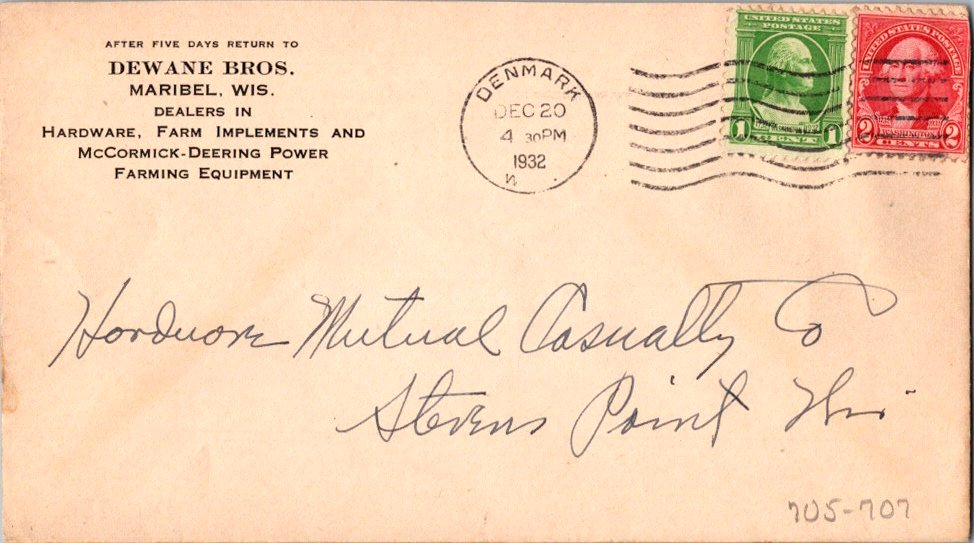 AFTER FIVE DAYS RETURN TO
DEWANE BROS.
MARIBEL, WIS.
DEALERS IN
HARDWARE, FARM IMPLEMENTS AND
MCCORMICK-DEERING POWER
FARMING EQUIPMENT
DENMARK
DEC 20
4 30PM
1932
W
UNITED STATES
POSTAGE
1 1
CENT
UNITED STATES POSTAGE
WASHINGTON
2 2
CENTS
Hardware Mutual Casualty Co
Stevens Point Wis.
705-707